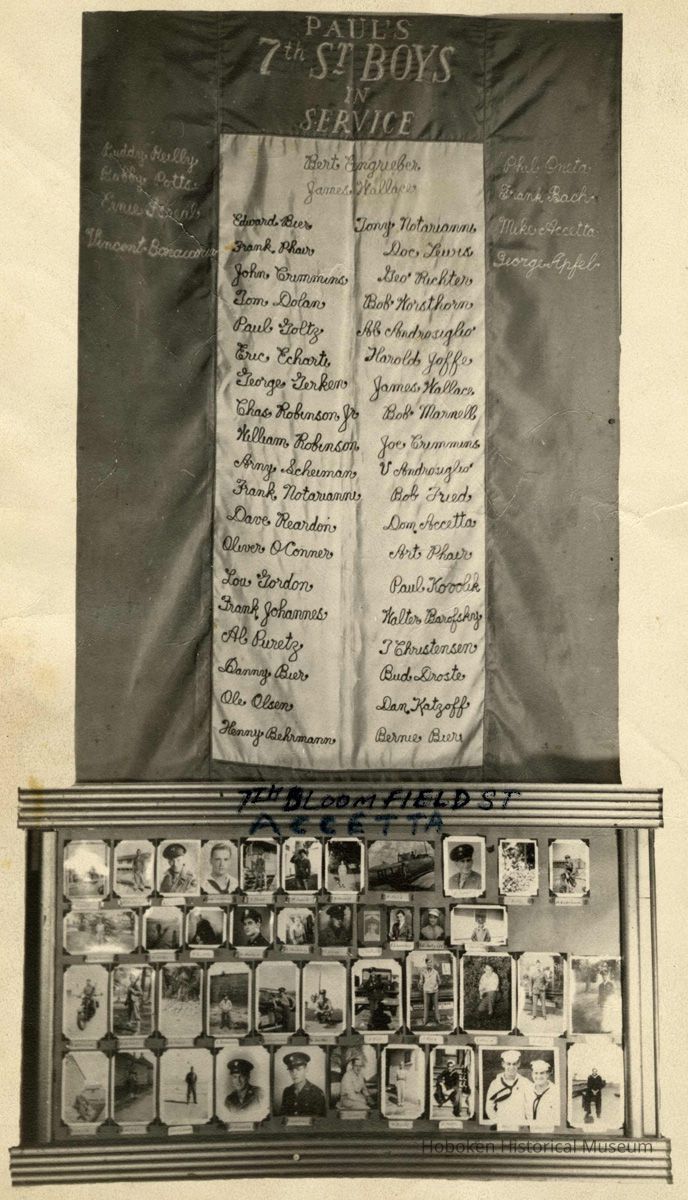 PAUL'S
7th ST BOYS
IN
SERVICE
Bert Engrieber
James Wallace
Buddy Reilly
Bobby Potts
Ernie
Vincent
Phil Oneta
Frank Bach
Mike Accetta
George Apfel
Edward Bier
Frank Phair
John Crimmins
Tom Dolan
Paul Goltz
Eric Echarti
George Gerken
Chas Robinson Jr
William Robinson
Arny Scheiman
Frank Notarianni
Dave Reardon
Oliver O'Conner
Lou Gordon
Frank Johannes
Al Puretz
Danny Bier
Ole Olsen
Henny Behrmann
Tony Notarianni
Doc Lewis
Geo Richter
Bob Horsthorn
Al Androsiglio
Harold Joffe
James Wallace
Bob Marnell
Joe Crimmins
V Androsiglio
Bob Fried
Dom Accetta
Art Phair
Paul Kovolik
Walter Barofsky
T Christensen
Bud Droste
Dan Katzoff
Bernie Bier
7th BLOOMFIELD ST
ACCETTA
Hoboken Historical Museum